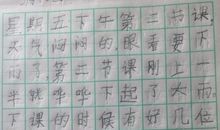 星期五下午第二节课
天气闷闷的眼看要下
雨了,第二节课刚上一
半就哗哗下起了大雨。
下课的时候有好几